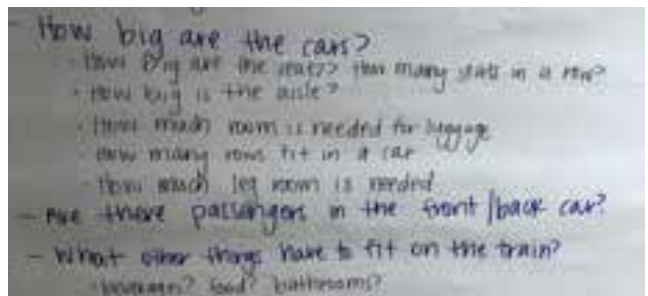 - How big are the cars?
- How big are the seats? How many seats in a row?
- How big is the aisle?
- How much room is needed for luggage
- How many rows fit in a car
- How much leg room is needed
- Are there passangers in the front/back car?
- What other things have to fit on the train?
- beverages? food? bathrooms?